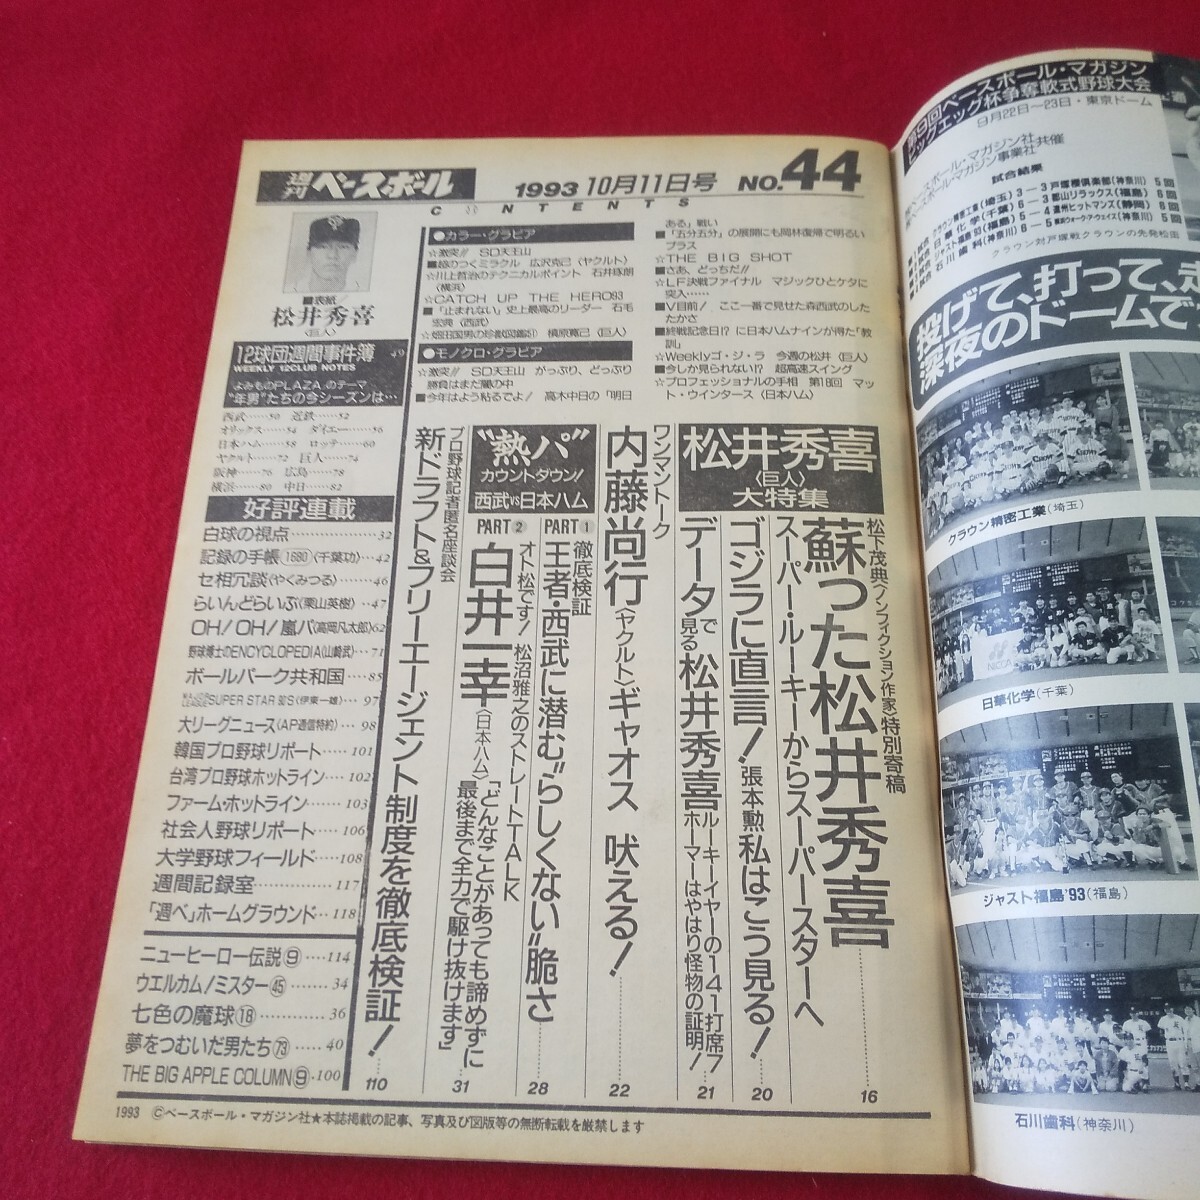 週刊ベースボール
1993 10月11日号 NO.44
CONTENTS
■表紙/
松井秀喜
〈巨人〉
12球団週間事件簿 49
WEEKLY 12CLUB NOTES
よみものPLAZA のテーマ
“年男”たちの今シーズンは…
西武……50 近鉄……52
オリックス……54 ダイエー……56
日本ハム……58 ロッテ……60
ヤクルト……72 巨人……74
阪神……76 広島……78
横浜……80 中日……82
好評連載
白球の視点……32
記録の手帳1680〈千葉功〉…42
セ相冗談(やくみつる)……46
らいんどらいぶ(栗山英樹)…47
OH!OH!嵐パ(高岡凡太郎)62
野球博士のENCYCLOPEDIA(山崎武)…71
ボールパーク共和国……85
SUPER STAR 列S(伊東一雄)…97
大リーグニュース(AP通信特約)…98
韓国プロ野球リポート…101
台湾プロ野球ホットライン…102
ファーム・ホットライン…103
社会人野球リポート…106
大学野球フィールド…108
週間記録室……117
「週べ」ホームグラウンド…118
ニューヒーロー伝説⑨…114
ウエルカム!ミスター㊺…34
七色の魔球⑱……36
夢をつむいだ男たち73…40
THE BIG APPLE COLUMN⑨…100
●カラー・グラビア
☆激突!! SD天王山
■超のつくミラクル 広沢克己(ヤクルト)
☆川上哲治のテクニカルポイント 石井琢朗
(横浜)
☆CATCH UP THE HERO93
■「止まれない」史上最高のリーダー 石毛
宏典〈西武〉
☆畑田国男の珍獣図鑑 槙原寛己〈巨人〉
●モノクロ・グラビア
☆激突!! SD天王山 がっぷり、どっぷり
勝負はまだ闇の中
■今年はよう粘るでよ! 高木中日の「明日
ある」戦い
■「五分五分」の展開にも岡林復帰で明るい
プラス
☆THE BIG SHOT
■さあ、どっちだ!!
☆LF決戦ファイナル マジックひとケタに
突入……
■V目前! ここ一番で見せた森西武のした
たかさ
■終戦記念日!? に日本ハムナインが得た「教
訓」
☆Weeklyゴ・ジ・ラ 今週の松井〈巨人〉
■今しか見られない!? 超高速スイング
☆プロフェッショナルの手相 第18回 マッ
ト・ウインタース〈日本ハム〉
松井秀喜
〈巨人〉
大特集
松下茂典〈ノンフィクション作家〉特別寄稿
蘇った松井秀喜
スーパー・ルーキーからスーパースターへ……16
ゴジラに直言! 張本勲 私はこう見る!……20
データで見る松井秀喜 ルーキーイヤーの141打席7ホーマーはやはり怪物の証明!……21
ワンマントーク
内藤尚行〈ヤクルト〉ギャオス 吠える!……22
“熱パ”
カウントダウン!
西武vs日本ハム
PART① 徹底検証
王者・西武に潜む“らしくない”脆さ……28
オト松です! 松沼雅之のストレートTALK
PART② 白井一幸〈日本ハム〉「どんなことがあっても諦めずに最後まで全力で駆け抜けます」
31
プロ野球記者匿名座談会
新ドラフト&フリーエージェント制度を徹底検証!……110
1993 ©ベースボール・マガジン社★本誌掲載の記事、写真及び図版等の無断転載を厳禁します
第9回ベースボール・マガジン
ビッグエッグ杯争奪軟式野球大会
9月22日〜23日・東京ドーム
ベースボール・マガジン社
ベースボール・マガジン事業社 共催
試合結果
クラウン精密工業(埼玉)3−3戸塚橙倶楽部(神奈川) 5回
日華化学(千葉)6−3郡山リラックス(福島) 6回
ジャスト福島'93(福島)5−4遠州ヒットマンズ(静岡) 6回
石川歯科(神奈川)6−5東京ウォーク・アウェイズ(神奈川) 5回
クラウン対戸塚戦クラウンの先発松田
投げて、打って、走
深夜のドームで
クラウン精密工業(埼玉)
日華化学(千葉)
ジャスト福島'93(福島)
石川歯科(神奈川)